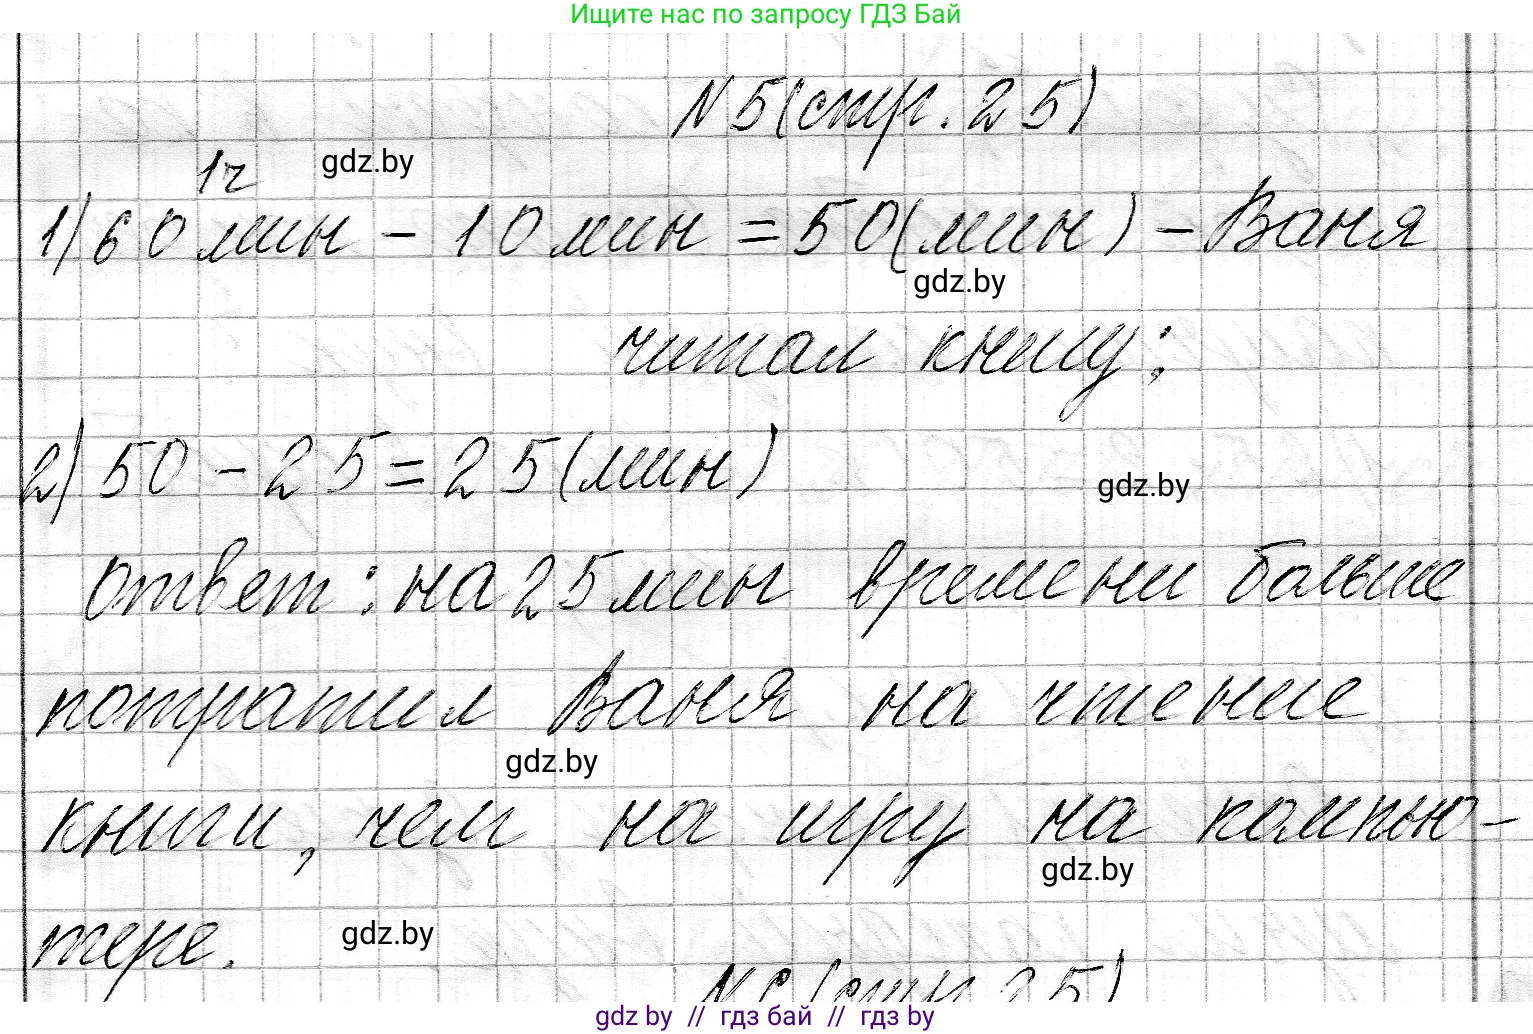 Ищите нас по запросу ГДЗ Бай
N 5 (стр. 25)
1ч
gdz.by
1) 60 мин - 10 мин = 50 (мин) - Ваня
gdz.by
читал книгу;
2) 50 - 25 = 25 (мин)
gdz.by
Ответ: на 25 мин времени больше
потратил Ваня на чтение
gdz.by
книги, чем на игру на компью-
gdz.by
тере.
gdz.by
gdz by // гдз бай // гдз by